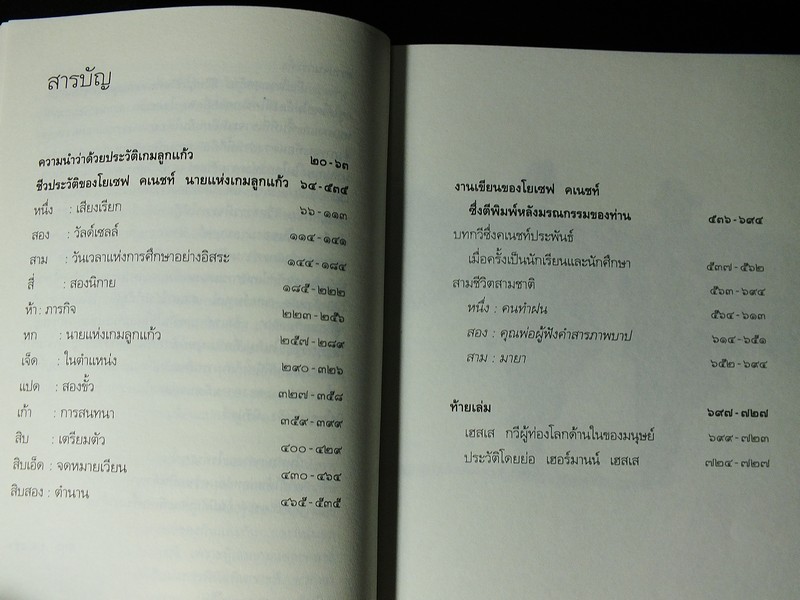 สารบัญ
ความนำว่าด้วยประวัติเกมลูกแก้ว ๒๐-๖๓
ชีวประวัติของโยเซฟ คเนชท์ นายแห่งเกมลูกแก้ว ๖๔-๕๓๕
หนึ่ง : เสียงเรียก ๖๖-๑๑๓
สอง : วัลด์เซลล์ ๑๑๔-๑๔๑
สาม : วันเวลาแห่งการศึกษาอย่างอิสระ ๑๔๔-๑๘๔
สี่ : สองนิกาย ๑๘๕-๒๒๒
ห้า : ภารกิจ ๒๒๓-๒๕๖
หก : นายแห่งเกมลูกแก้ว ๒๕๗-๒๘๙
เจ็ด : ในตำแหน่ง ๒๙๐-๓๒๖
แปด : สองขั้ว ๓๒๗-๓๕๘
เก้า : การสนทนา ๓๕๙-๓๙๙
สิบ : เตรียมตัว ๔๐๐-๔๒๙
สิบเอ็ด : จดหมายเวียน ๔๓๐-๔๖๔
สิบสอง : ตำนาน ๔๖๕-๕๓๕
งานเขียนของโยเซฟ คเนชท์
ซึ่งตีพิมพ์หลังมรณกรรมของท่าน ๕๓๖-๖๙๔
บทกวีซึ่งคเนชท์ประพันธ์
เมื่อครั้งเป็นนักเรียนและนักศึกษา ๕๓๗-๕๖๒
สามชีวิตสามชาติ ๕๖๓-๖๙๔
หนึ่ง : คนทำฝน ๕๖๔-๖๑๓
สอง : คุณพ่อผู้ฟังคำสารภาพบาป ๖๑๔-๖๕๑
สาม : มายา ๖๕๒-๖๙๔
ท้ายเล่ม ๖๙๗-๗๒๗
เฮสเส กวีผู้ท่องโลกด้านในของมนุษย์ ๖๙๙-๗๒๓
ประวัติโดยย่อ เฮอร์มานน์ เฮสเส ๗๒๔-๗๒๗